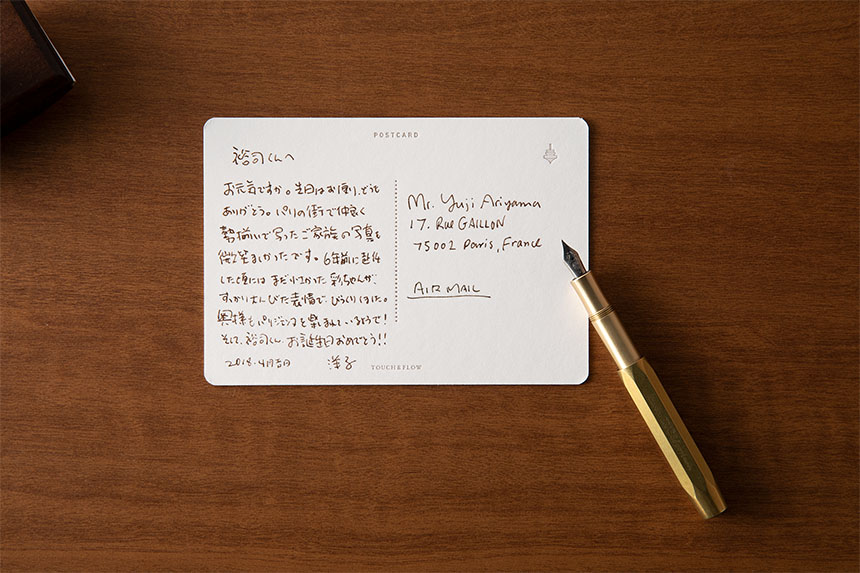 POSTCARD
裕司くんへ
お元気ですか。先日はお便り、とても
ありがとう。パリの街で仲良く
勢揃いで写ったご家族の写真を
微笑ましかったです。6年前に赴任
した頃にはまだ小さかった彩ちゃんが、
すっかり大人びた表情で、びっくりしました。
奥様もパリジェンヌを楽しまれているようで!
そして、裕司くん お誕生日おめでとう!!
2018.4月吉日 洋子
Mr. Yuji Ariyama
17. Rue GAILLON
75002 Paris, France
AIR MAIL
TOUCH&FLOW